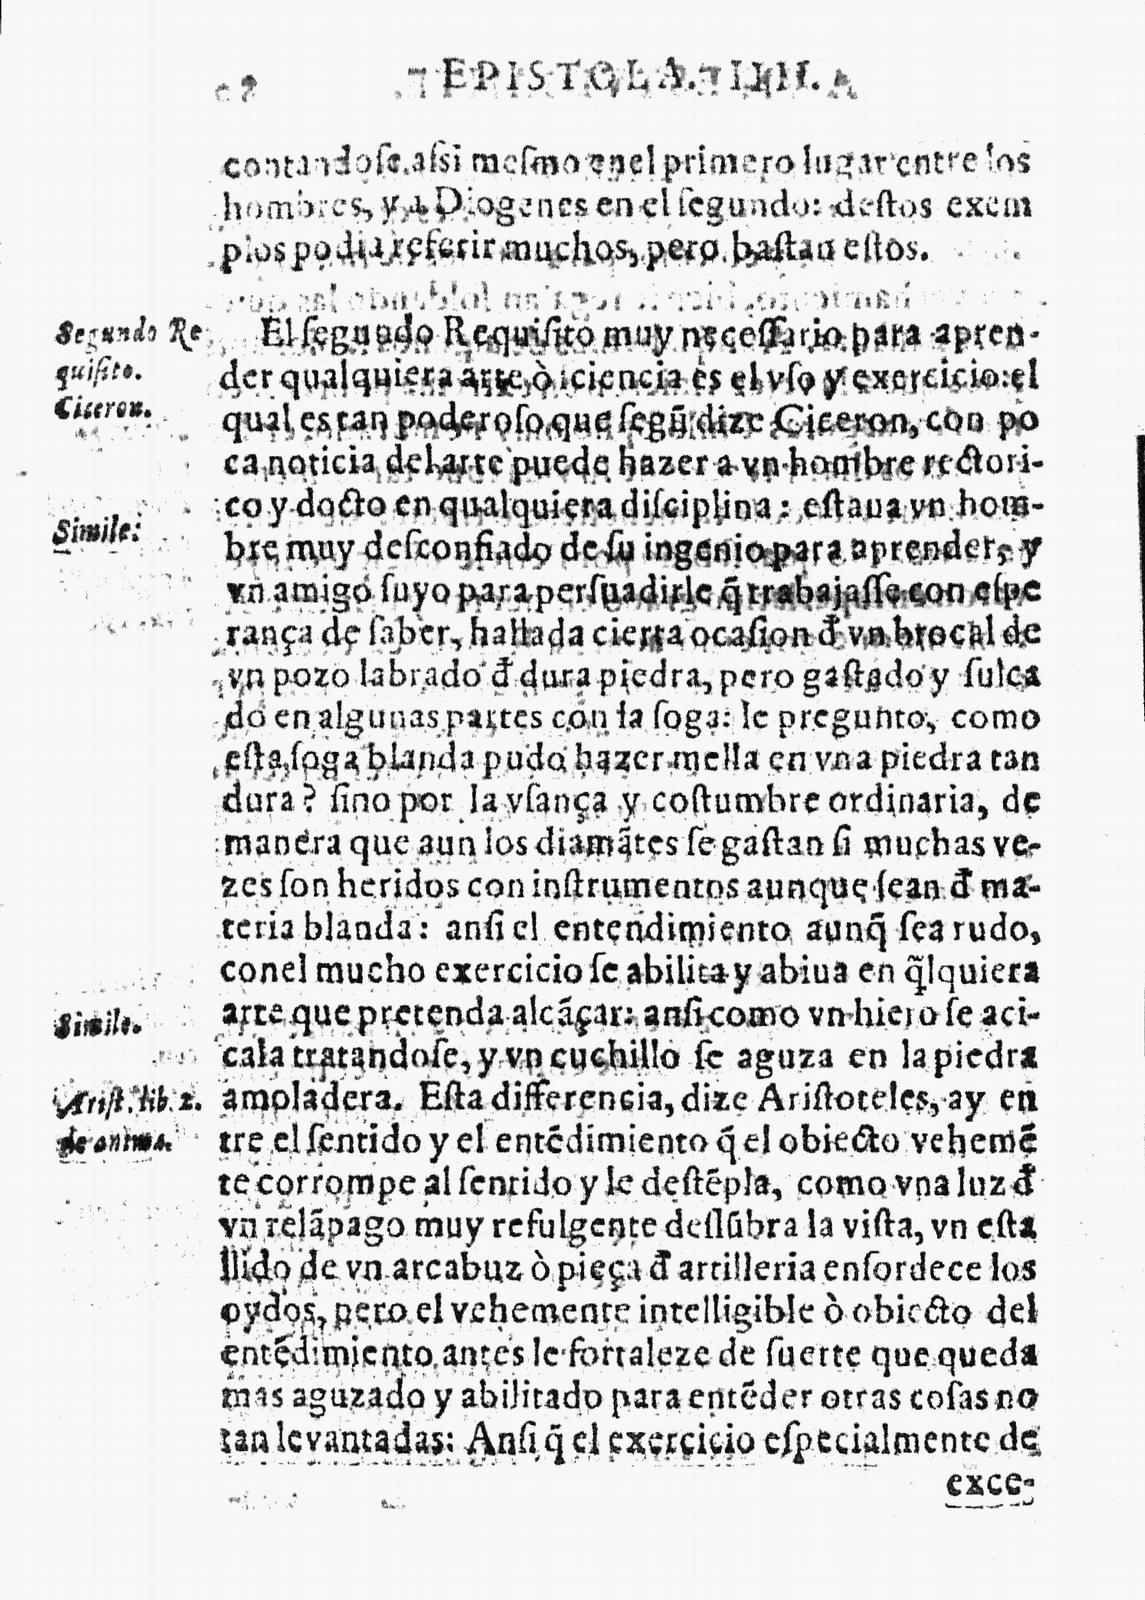 EPISTOLA. IIII.
contandose assi mesmo enel primero lugar entre los
hombres, y a Diogenes en el segundo: destos exem
plos podia referir muchos, pero bastan estos.
Segundo Re
quisito.
Ciceron.
El segundo Requisito muy necessario para apren-
der qualquiera arte ò sciencia es el vso y exercicio: el
qual es tan poderoso que segũ dize Ciceron, con po
ca noticia del arte puede hazer a vn hombre rectori-
co y docto en qualquiera disciplina: estaua vn hom-
Simile:
bre muy desconfiado de su ingenio para aprender, y
vn amigo suyo para persuadirle q̃ trabajasse con espe
rança de saber, hallada cierta ocasion đ vn brocal de
vn pozo labrado đ dura piedra, pero gastado y sulca
do en algunas partes con la soga: le pregunto, como
esta soga blanda pudo hazer mella en vna piedra tan
dura? sino por la vsança y costumbre ordinaria, de
manera que aun los diamãtes se gastan si muchas ve-
zes son heridos con instrumentos aunque sean đ ma-
teria blanda: ansi el entendimiento aunq̃ sea rudo,
conel mucho exercicio se abilita y abiua en q̃lquiera
Simile.
arte que pretenda alcãçar: ansi como vn hiero se aci-
cala tratandose, y vn cuchillo se aguza en la piedra
Arist. lib. 2.
de anima.
amoladera. Esta differencia, dize Aristoteles, ay en
tre el sentido y el entẽdimiento q̃ el obiecto vehemẽ
te corrompe al sentido y le destẽpla, como vna luz đ
vn relãpago muy refulgente deslũbra la vista, vn esta
llido de vn arcabuz ò pieça đ artilleria ensordece los
oydos, pero el vehemente intelligible ò obiecto del
entẽdimiento antes le fortaleze de suerte que queda
mas aguzado y abilitado para entẽder otras cosas no
tan levantadas: Ansi q̃ el exercicio especialmente de
exce-